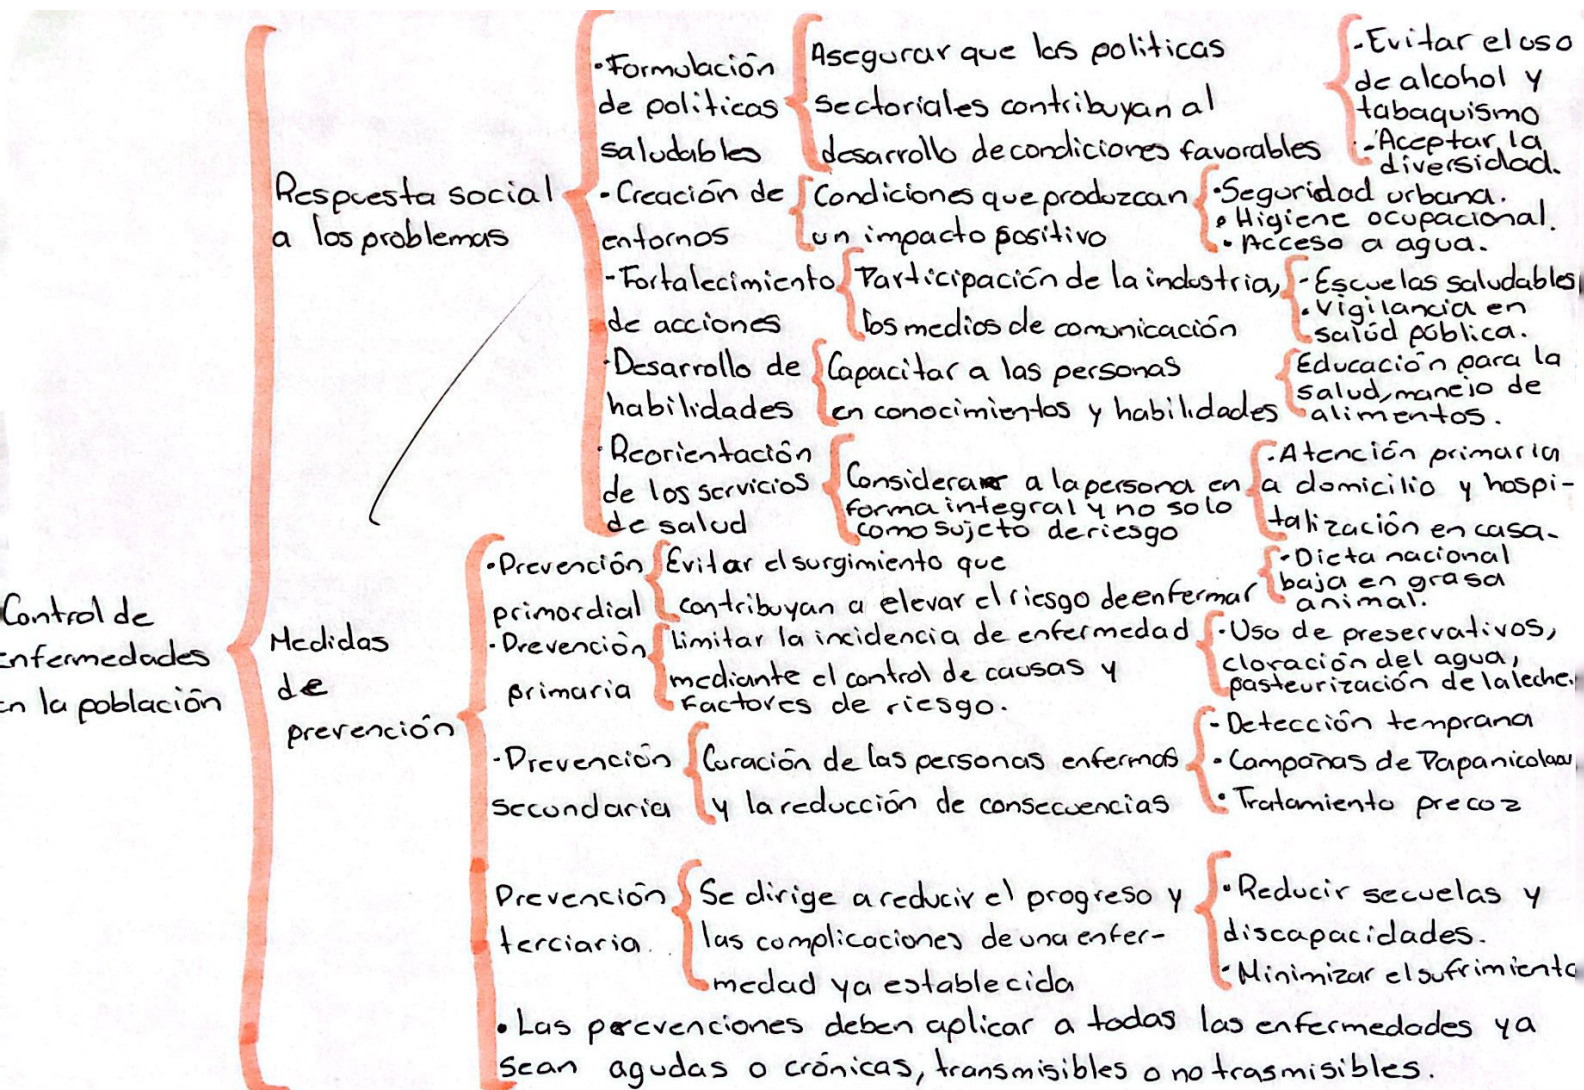 Control de
Enfermedades
en la población
Respuesta social
a los problemas
•Formulación
de políticas
saludables
Asegurar que las politicas
sectoriales contribuyan al
desarrollo de condiciones favorables
-Evitar el uso
de alcohol y
tabaquismo
-Aceptar la
diversidad.
•Creación de
entornos
Condiciones que produzcan
un impacto positivo
•Seguridad urbana.
•Higiene ocupacional.
•Acceso a agua.
-Fortalecimiento
de acciones
Participación de la industria,
los medios de comunicación
-Escuelas saludables
•Vigilancia en
salúd pública.
•Desarrollo de
habilidades
Capacitar a las personas
en conocimientos y habilidades
Educación para la
salud, manejo de
alimentos.
•Reorientación
de los servicios
de salud
Considerar a la persona en
forma integral y no solo
como sujeto de riesgo
•Atención primaria
a domicilio y hospi-
talización en casa.
Medidas
de
prevención
•Prevención
primordial
Evitar el surgimiento que
contribuyan a elevar el riesgo de enfermar
-Dieta nacional
baja en grasa
animal.
•Prevención
primaria
limitar la incidencia de enfermedad
mediante el control de causas y
Factores de riesgo.
•Uso de preservativos,
cloración del agua,
pasteurización de la leche.
•Prevención
secundaria
Curación de las personas enfermas
y la reducción de consecuencias
-Detección temprana
•Campañas de Papanicolaou
•Tratamiento precoz
Prevención
terciaria.
Se dirige a reducir el progreso y
las complicaciones de una enfer-
medad ya establecida
•Reducir secuelas y
discapacidades.
•Minimizar el sufrimiento
•Las prevenciones deben aplicar a todas las enfermedades ya
sean agudas o crónicas, transmisibles o no trasmisibles.